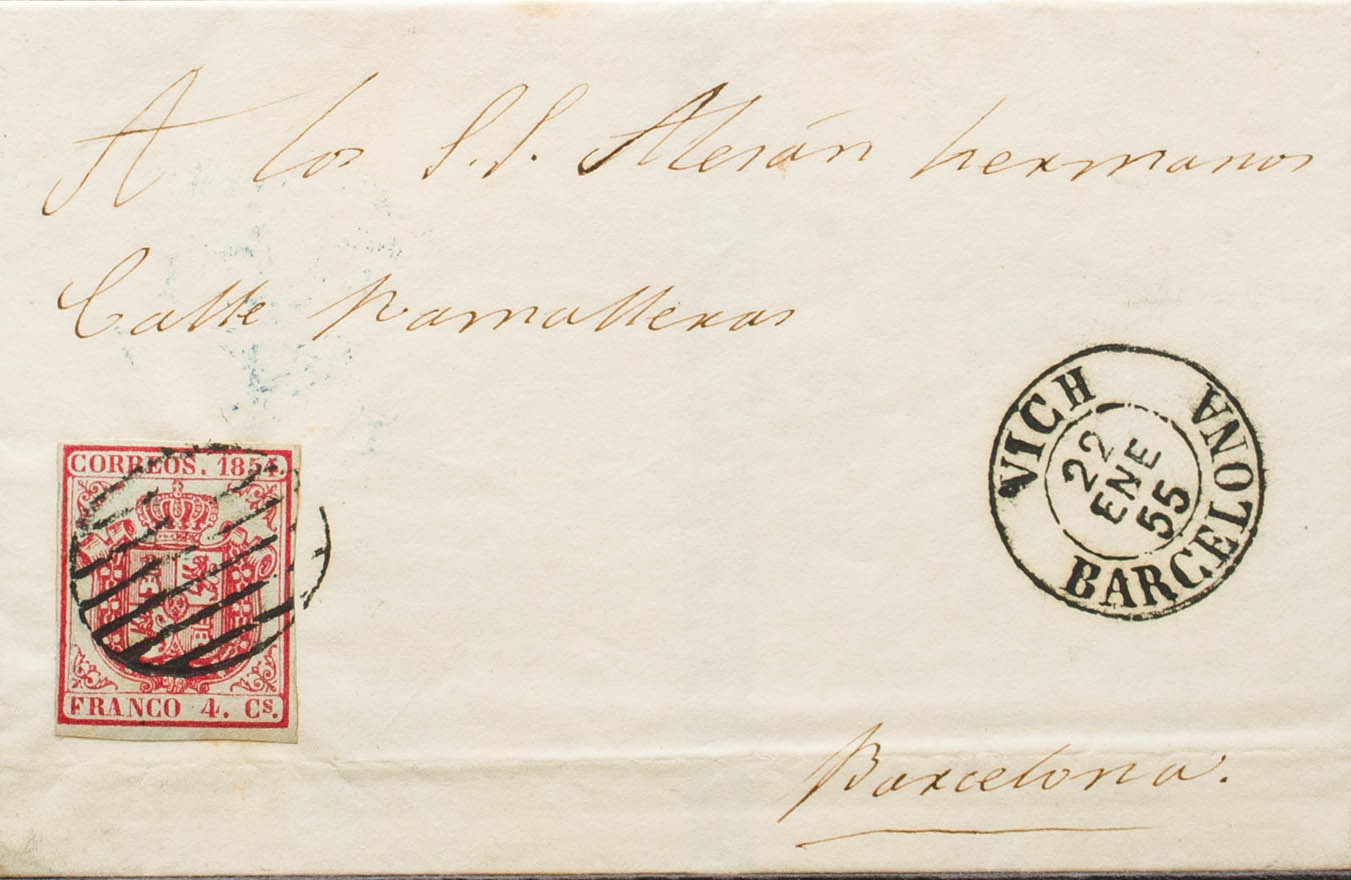 A los S.S. Alesán hermanos
Calle Ramalleras
CORREOS. 1854.
FRANCO 4. Cs.
VICH
22
ENE
55
BARCELONA
Barcelona.